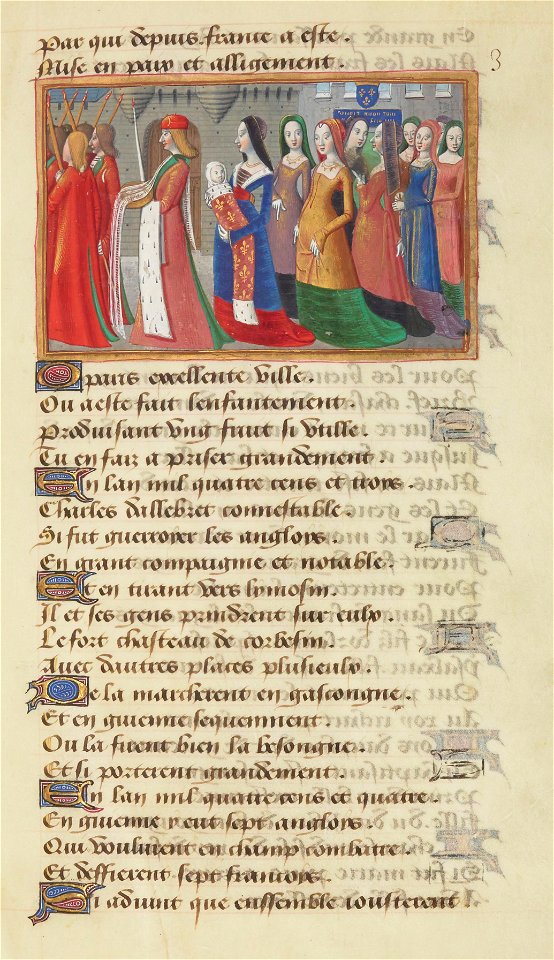 Par qui depuis france a este.
Mise en paix et alligement.
3
O paris excellente ville.
Ou a este fait lenfantement.
Produisant ung fruit si utille
Tu en faiz a priser grandement.
En lan mil quatre cens et troys.
Charles dallebret connestable.
Si fut guerroyer les angloys.
En grant compaignie et notable.
Et en tirant vers lymosin.
Il et ses gens prindrent sur eulx.
Le fort chasteau de corbesin.
Avec dautres places plusieulx.
De la marcherent en gascongne.
Et en guienne sequemment.
Ou la firent bien la besongne.
Et si porterent grandement.
En lan mil quatre cens et quatre.
En guienne y eut sept angloys.
Qui voulurent en champ combatre.
Et deffierent sept francoys.
Si advint que enssemble iousterent.